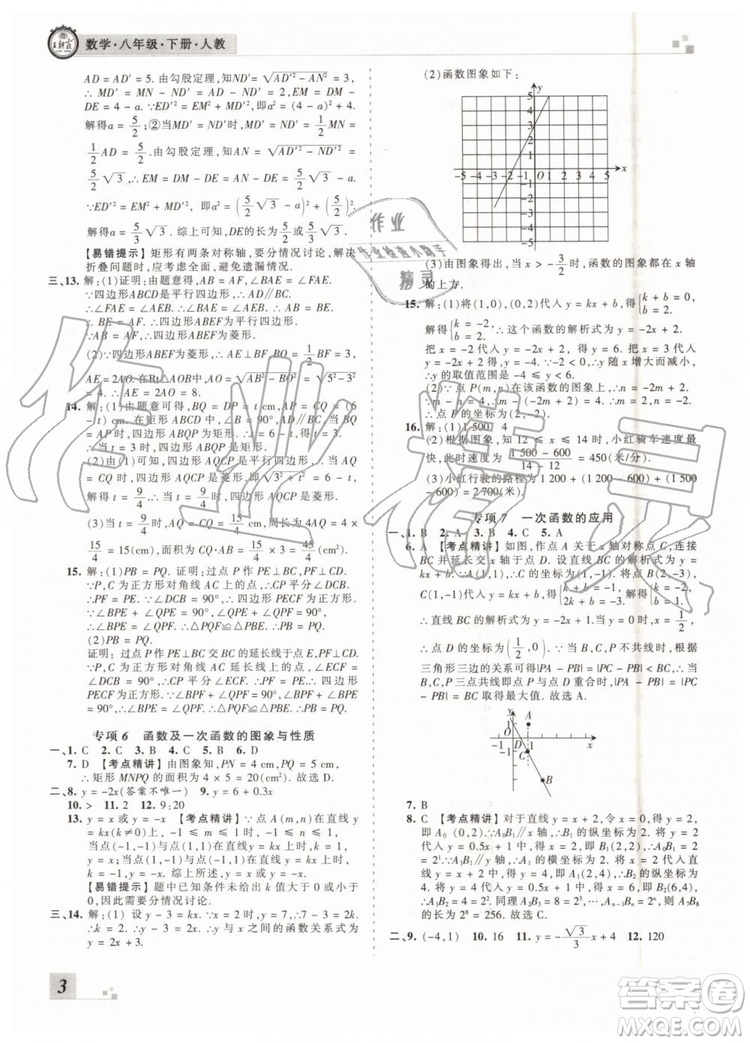 数学·八年级·下册·人教
AD = AD′ = 5. 由勾股定理,知ND′ = √(AD′² − AN²) = 3,
∴ MD′ = 2. 设 DE = a, 则 ED′ = a, EM = DM −
DE = 4 − a. ∵ED′² = EM² + MD′², 即a² = (4 − a)² + 4.
解得a = 5/2; ②当MD′ = ND′时, MD′ = ND′ = 1/2 MN =
1/2 AD = 5/2. 由勾股定理, 知AN = √(AD′² − ND′²) =
5/2 √3, ∴ EM = DM − DE = AN − DE = 5/2 √3 − a.
∵ED′² = EM² + MD′², 即a² = (5/2 √3 − a)² + (5/2)².
解得a = 5/3 √3. 综上可知, DE的长为5/2 或 5/3 √3.
【易错提示】矩形有两条对称轴, 要分情况讨论, 解决
折叠问题时, 应考虑全面, 避免遗漏情况.
三、13. 解:(1)证明:由题意, 得AB = AF, ∵AB = AE, ∴ AF = AE.
∵四边形ABCD是平行四边形, ∴AE∥BF.
∴ ∠FAE = ∠AEB. ∴ ∠FAE = ∠AEB.
∵四边形ABFE是平行四边形.
(2)∵四边形ABFE为菱形, ∴ AE⊥BF, BO = 1/2 BF = 3,
AE = 2AO. 在Rt△AOB中, AO = √(AB² − BO²) = √(5² − 3²) =
4, ∴ AE = 2AO = 8.
14. 解:(1)由题意可得, BQ = DP = t cm, AP = CQ = (6
− t) cm. ∵四边形ABQP为矩形, ∴ BQ = AP. ∴ t = 6
− t. ∴ t = 3.
(2)由题意可知, ∠B = 90°, AB = 3 cm, ∴ 当AQ = CQ
时, 四边形AQCP为菱形. 即√(3² + t²) = 6 − t. 解得t =
9/4. ∴当t = 9/4 时, 四边形AQCP是菱形.
(3)当t = 9/4 时, CQ = 15/4 cm, 周长为4CQ = 4 ×
15/4 = 15(cm), 面积为 15/4 × 3 = 45/4 (cm²).
15. 解:(1)PB = PQ. 证明:过点P作PE⊥BC, PF⊥CD,
∵P, C为正方形对角线AC上的点, ∴ PC平分∠DCB.
∴ PF = PE. ∴ 四边形PECF为正方形. ∵ ∠BPE +
∠QPE = 90°, ∠QPE + ∠QPF = 90°, ∴ ∠BPE =
∠QPF. ∴ △PQF≌△PBE. ∴ PB = PQ.
(2)PB = PQ.
证明:过点P作PE⊥BC, PF⊥CD, ∵P, C为正方形对
角线AC上的点, ∴ PC平分∠DCB, ∴ ∠ECF =
∠CEP = ∠CFP = 90°. ∴ PF = PE. ∴ 四边形
PECF为正方形. ∵ ∠BPF + ∠QPF = 90°, ∠BPF +
∠BPE = 90°, ∴ ∠BPE = ∠QPF. ∴ △PQF≌△PBE.
∴ PB = PQ.
专项 6 函数及一次函数的图象与性质
一、1. C 2. C 3. B 4. C 5. B 6. D
7. D 【考点精讲】由图象知, PN = 4 cm, PQ = 5 cm,
∴ 矩形MNPQ的面积为4 × 5 = 20(cm²). 故选D.
二、8. y = −2x(答案不唯一) 9. y = 6 + 0.3x
10. > 11. 2 12. 9:20
13. y = x或y = −x 【考点精讲】∵ 点A(m, n)在直线y =
kx(k≠0)上, −1 ≤ m ≤ 1时, −1 ≤ n ≤ 1, ∴ ①
当点(−1, −1)与点(1, 1)在直线上时, k = 1, ∴ y = x; ②
当点(−1, 1)与点(1, −1)在直线y = kx上时, k = −1,
∴ y = −x. 综上可得, 直线的解析式为y = x或y = −x.
【易错提示】题中已知条件未给出k值大于0或小于
0, 因此应分情况讨论.
三、14. 解:(1)设y − 3 = kx, ∵ 当x = 2时, y = 7, ∴ 7 − 3 =
2k. ∴ k = 2. ∴ y与x之间的函数关系式为y = 2x + 3.
3
(2)函数图象如下:
(3)由图象得出, 当x > −3/2 时, 函数的图象在x轴
的上方.
15. 解:(1)将(1, 0), (0, 2)代入y = kx + b, 得{k + b = 0, b = 2.
解得{k = −2, b = 2. ∴ 这个函数的解析式为y = −2x + 2.
把x = −2代入y = −2x + 2, 得y = 6. 把x = 3代入y =
−2x + 2, 得y = −4. ∵ −2 < 0, ∴ y随x的增大而减小,
∴ y的取值范围是 −4 ≤ y < 6.
(2)∵ 点P(m, n)在该函数的图象上, ∴ n = −2m + 2.
∵ m − n = 4, ∴ m − (−2m + 2) = 4. 解得m = 2, n =
−2. ∴ 点P的坐标为(2, −2).
16. 解:(1)1 500 4
(2)根据图象, 12 ≤ x ≤ 14时, 直线最陡, 小红骑车速度最
快, 此时速度为 (1 500 − 600)/(14 − 12) = 450(米/分).
(3)小红行驶的路程为1 200 + (1 200 − 600) + (1 500 −
600) = 2 700(米).
专项 7 一次函数的应用
一、1. B 2. A 3. B 4. C 5. A
6. A 【考点精讲】如图, 作点A关于x轴对称点C, 连接
BC并延长交x轴于点D. 设直线BC的解析式为y =
kx + b. 将B(2, −3), C(1, −1)代入, 得{k + b = −1, 2k + b = −3. ∴ {k = −2, b = 1.
∴ 直线BC的解析式为y = −2x + 1.
∴ 点D的坐标为(1/2, 0). ∵ 当B, C, P不共线时, 根据
三角形三边的关系可得|PA − PB| = |PC − PB| < BC, ∴ 当
点B, C, P共线, 即点P与点D重合时, |PA − PB| = |PC −
PB| = BC取得最大值. 故选A.
7. B
8. C 【考点精讲】对于直线y = x + 2, 令x = 0, 求出y = 2,
即A₀(0, 2), ∵A₀B₁∥x轴, ∴ B₁的纵坐标为2. 将y = 2
代入y = 0.5x + 1中, 得x = 2, 即B₁(2, 2), ∴A₀B₁ = 2 =
2¹. ∵A₁B₁∥y轴, ∴ A₁的横坐标为2. 将x = 2代入y =
x + 2中, 得y = 4, 即A₁(2, 4), ∵A₁B₂∥x轴, ∴ B₂的纵
坐标为4. 将y = 4代入y = 0.5x + 1中, 得x = 6, 即B₂
(6, 4), ∴A₁B₂ = 4 = 2², …, A₍ₙ₋₁₎Bₙ = 2ⁿ, ∴A₇B₈的
长为2⁸ = 256. 故选C.
二、9. (−4, 1) 10. 16 11. y = −(√3/3)x + 4 12. 120
答案圈
MXQE.COM